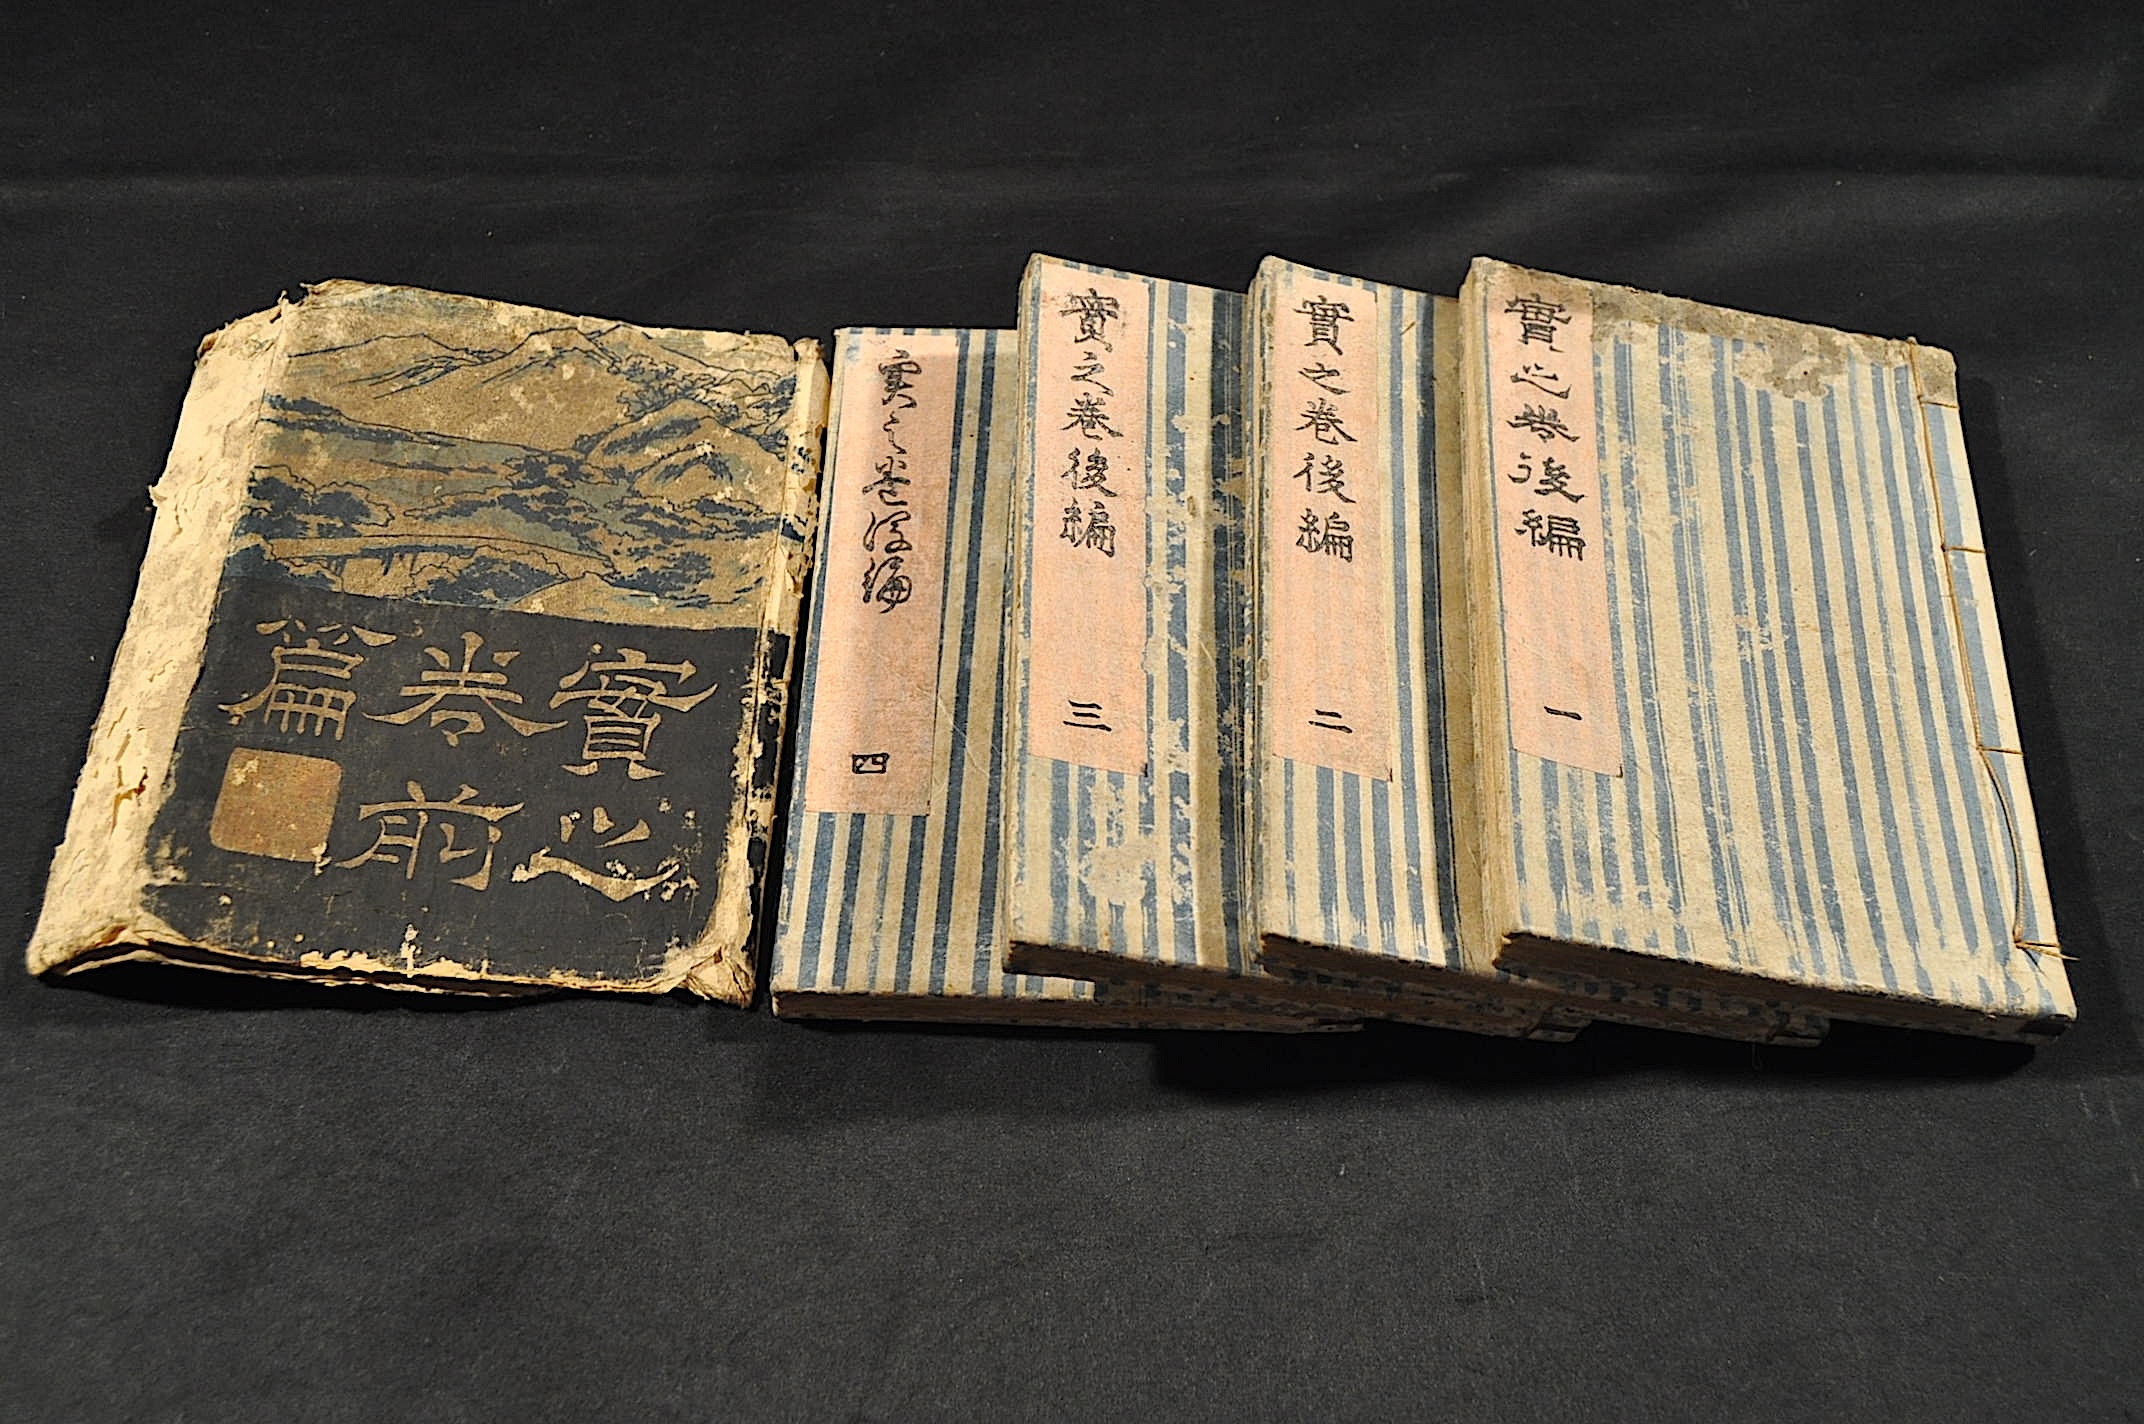 實之
卷前
篇
實之卷後編 四
實之巻後編 三
實之巻後編 二
實之巻後編 一